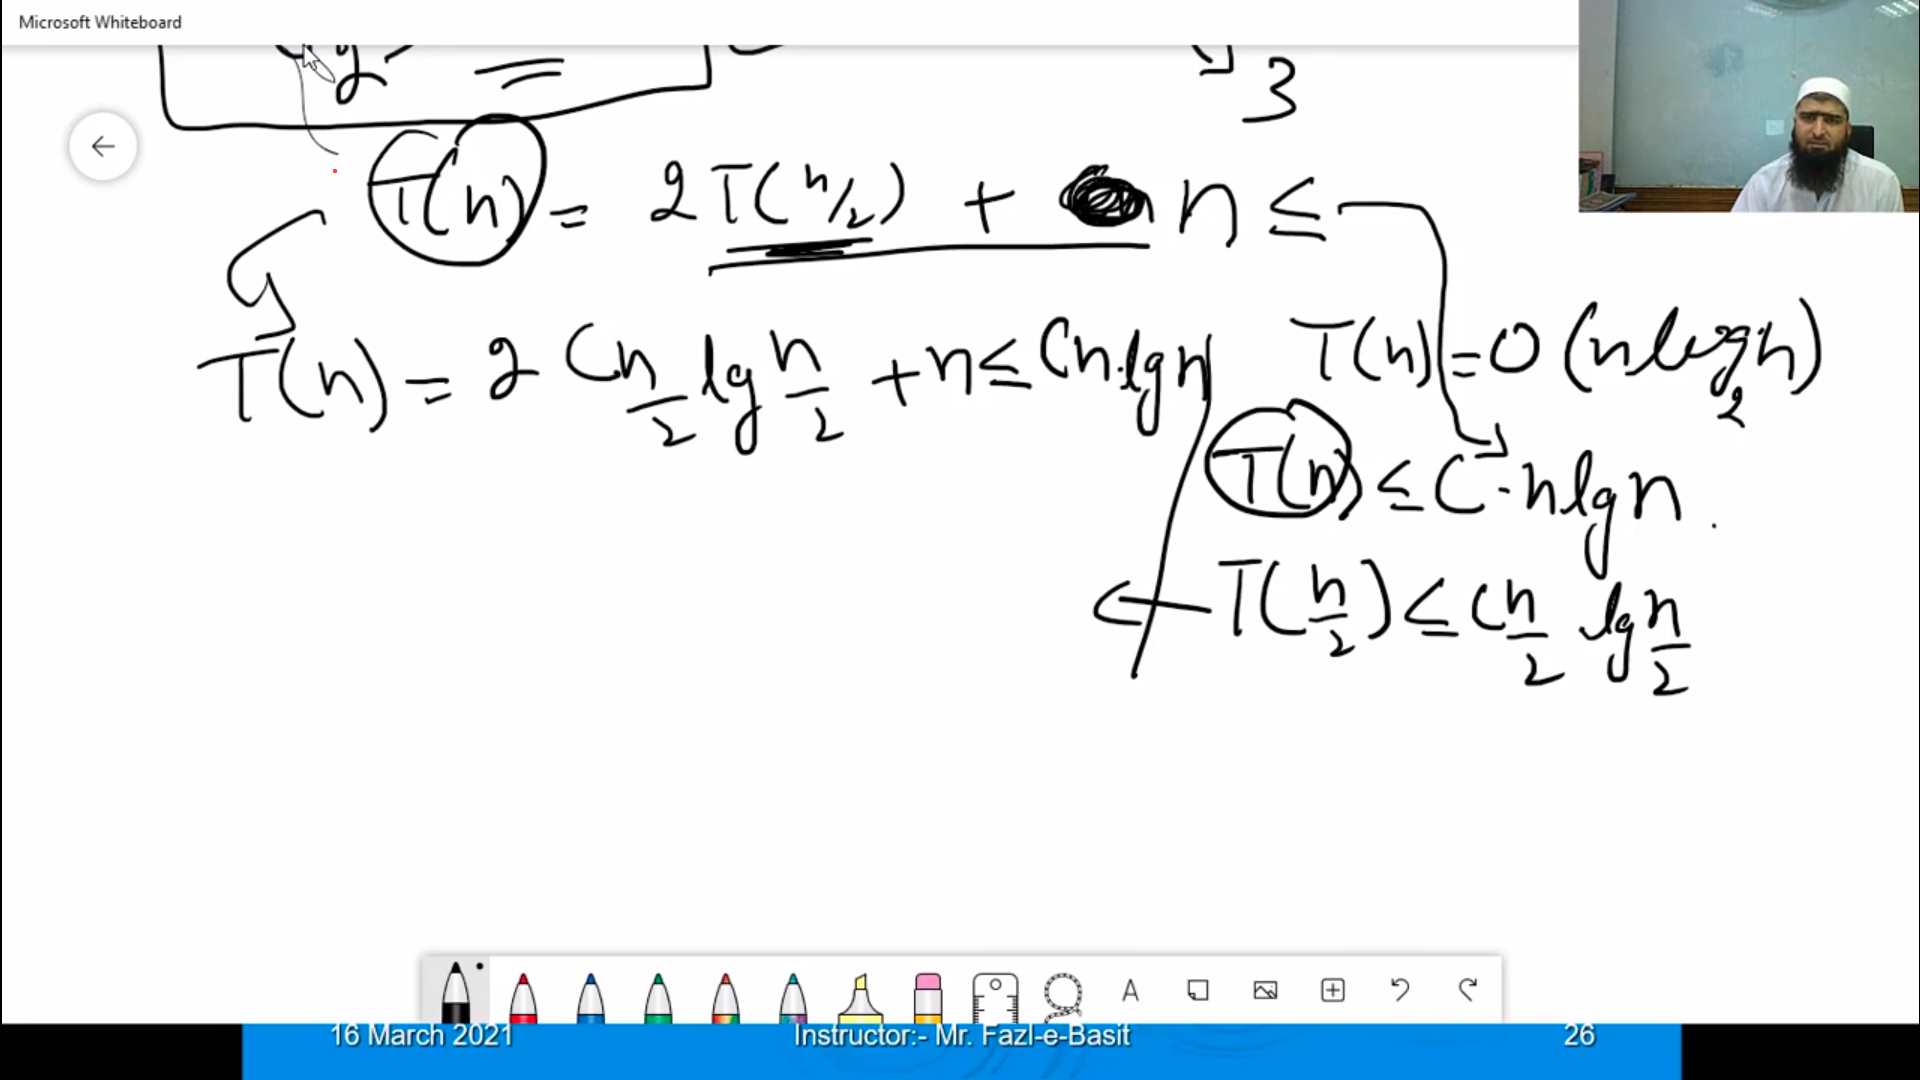 Microsoft Whiteboard
3
T(n) = 2T(n/2) + n ≤
T(n) = 2 Cn/2 lg n/2 + n ≤ Cn.lg n
T(n) = O(n log₂n)
T(n) ≤ C·n lg n
T(n/2) ≤ Cn/2 lg n/2
A
16 March 2021
Instructor:- Mr. Fazl-e-Basit
26